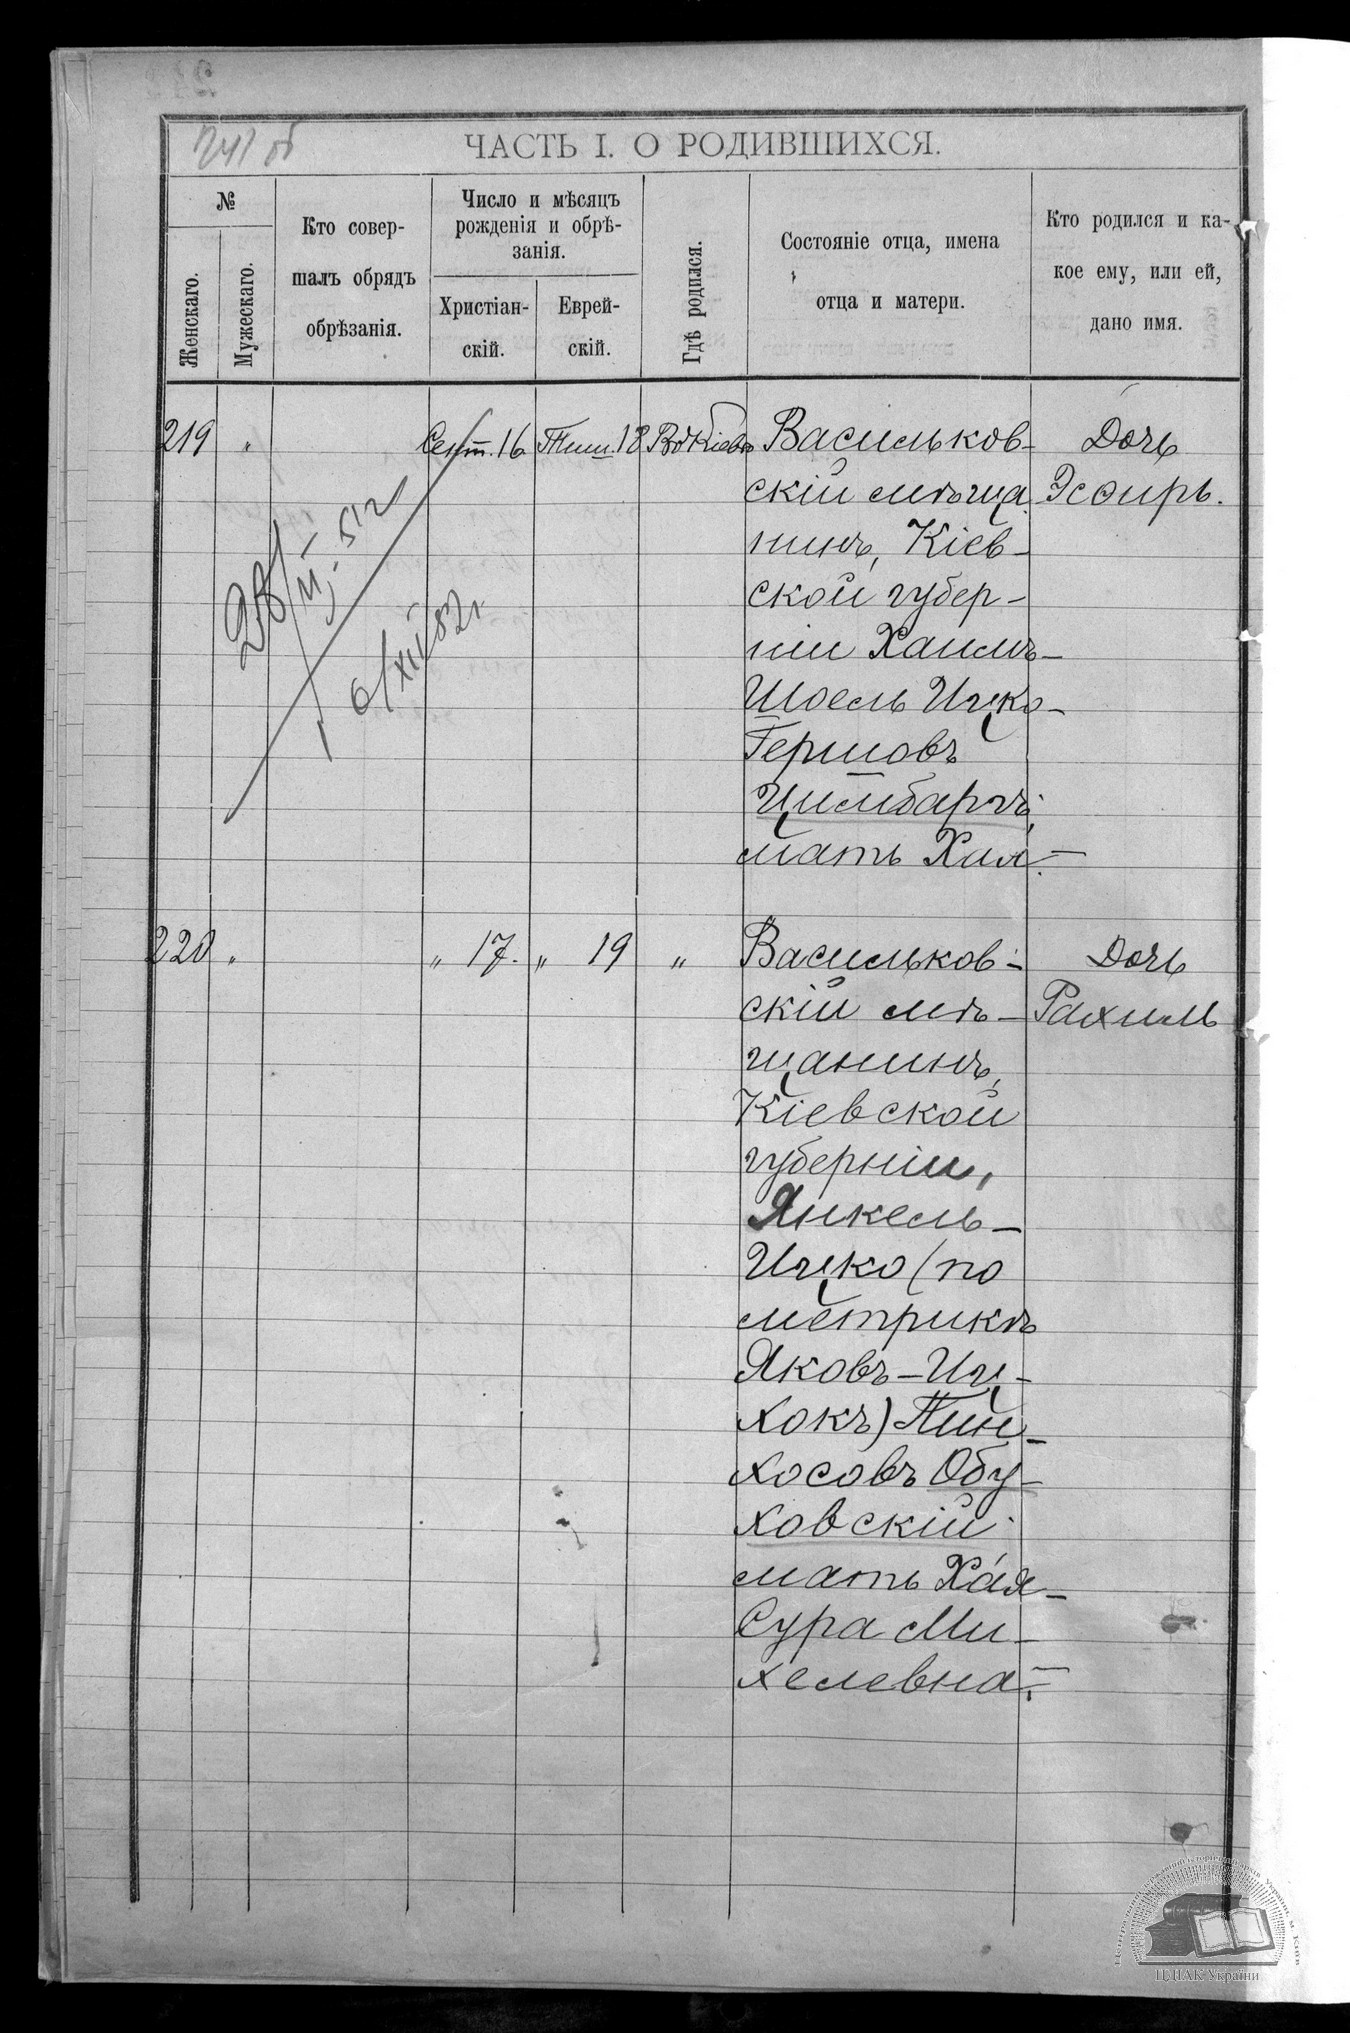 241 об
ЧАСТЬ I. О РОДИВШИХСЯ.
№
Женскаго.
Мужескаго.
Кто совер-
шалъ обрядъ
обрѣзанія.
Число и мѣсяцъ
рожденія и обрѣ-
занія.
Христіан-
скій.
Еврей-
скій.
Гдѣ родился.
Состояніе отца, имена
отца и матери.
Кто родился и ка-
кое ему, или ей,
дано имя.
219 " Сент. 16 Тиш. 18 Въ Кіевѣ Васильков- Дочь
скій мѣща Эсѳирь.
нинъ, Кіев-
ской губер-
ніи Хаимъ-
Шоель Ицко-
Гершовъ
Цимбаргъ,
мать Хая.
28/II-51г
6/XII 52г.
220 " " 17. " 19 " Васильков- Дочь
скій мѣ- Рахиль
щанинъ,
Кіевской
губерніи,
Янкель-
Ицко (по
метрикѣ
Яковъ-Иц-
хокъ) Пин-
хосовъ Обу-
ховскій
мать Хая-
Сура Ми-
хелевна.
ЦДІАК України